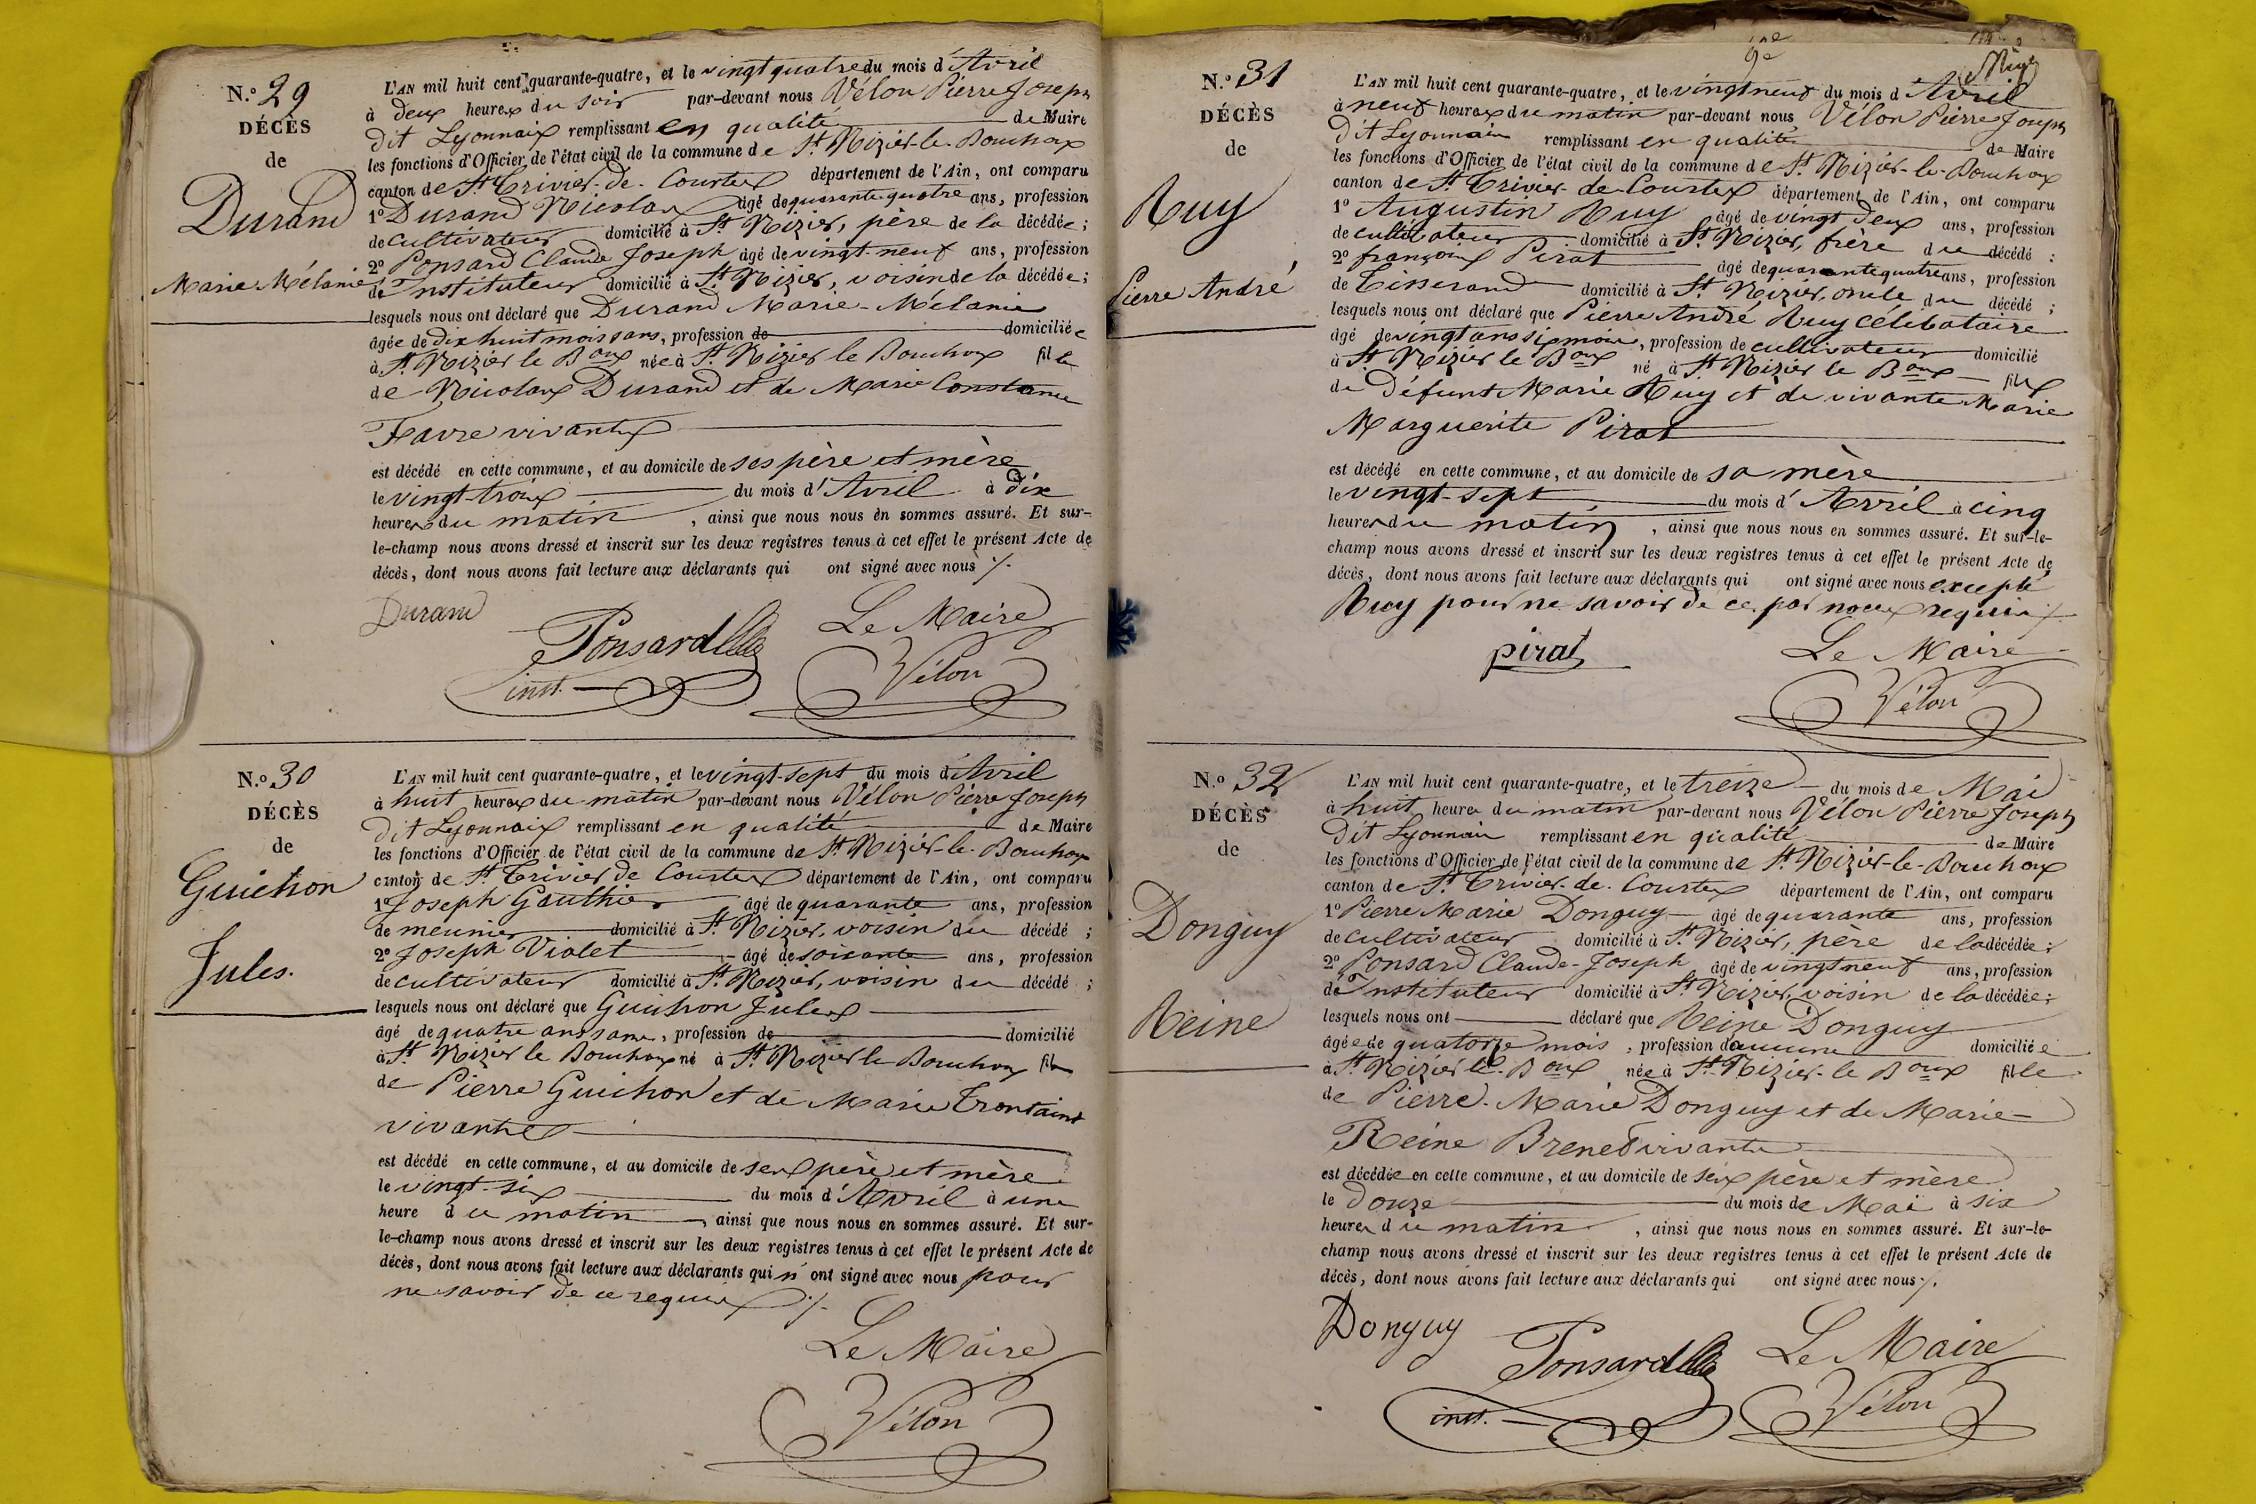 N.º 29
DÉCÈS
de
Durand
Marie Mélanie
L'AN mil huit cent quarante-quatre, et le vingt quatre du mois d'Avril
à deux heures du soir par-devant nous Vélon Pierre Joseph
dit Lyonnais remplissant en qualité de Maire
les fonctions d'Officier de l'état civil de la commune de St Nizier-le-Bouchoux
canton de St Trivier-de-Courtes département de l'Ain, ont comparu
1º Durand Nicolas âgé de quarante-quatre ans, profession
de cultivateur domicilié à St Nizier, père de la décédée ;
2º Ponsard Claude Joseph âgé de vingt-neuf ans, profession
de Instituteur domicilié à St Nizier, voisin de la décédée ;
lesquels nous ont déclaré que Durand Marie-Mélanie
âgée de dix huit mois sans, profession de domiciliée
à St Nizier le Boux née à St Nizier le Bouchoux fille
de Nicolas Durand et de Marie Constance
Favre vivants
est décédé en cette commune, et au domicile de ses père et mère
le vingt-trois du mois d'Avril à dix
heures du matin, ainsi que nous nous en sommes assuré. Et sur-
le-champ nous avons dressé et inscrit sur les deux registres tenus à cet effet le présent Acte de
décès, dont nous avons fait lecture aux déclarants qui ont signé avec nous ./.
Durand
Ponsard
inst.
Le Maire
Vélon
N.º 30
DÉCÈS
de
Guichon
Jules.
L'AN mil huit cent quarante-quatre, et le vingt-sept du mois d'Avril
à huit heures du matin par-devant nous Vélon Pierre Joseph
dit Lyonnais remplissant en qualité de Maire
les fonctions d'Officier de l'état civil de la commune de St Nizier-le-Bouchoux
canton de St Trivier de Courtes département de l'Ain, ont comparu
1º Joseph Gauthier âgé de quarante ans, profession
de meunier domicilié à St Nizier, voisin du décédé ;
2º Joseph Violet âgé de soixante ans, profession
de cultivateur domicilié à St Nizier, voisin du décédé ;
lesquels nous ont déclaré que Guichon Jules
âgé de quatre ans sans, profession de domicilié
à St Nizier le Bouchoux né à St Nizier le Bouchoux fils
de Pierre Guichon et de Marie Trontaint
vivants
est décédé en cette commune, et au domicile de ses père et mère
le vingt-six du mois d'Avril à une
heure du matin, ainsi que nous nous en sommes assuré. Et sur-
le-champ nous avons dressé et inscrit sur les deux registres tenus à cet effet le présent Acte de
décès, dont nous avons fait lecture aux déclarants qui n'ont signé avec nous pour
ne savoir de ce requis ./.
Le Maire
Vélon
N.º 31
DÉCÈS
de
Ruy
Pierre André
L'AN mil huit cent quarante-quatre, et le vingt neuf du mois d'Avril
à neuf heures du matin par-devant nous Vélon Pierre Joseph
dit Lyonnais remplissant en qualité de Maire
les fonctions d'Officier de l'état civil de la commune de St Nizier-le-Bouchoux
canton de St Trivier-de-Courtes département de l'Ain, ont comparu
1º Augustin Ruy âgé de vingt deux ans, profession
de cultivateur domicilié à St Nizier, frère du décédé ;
2º françois Pirat âgé de quarante quatre ans, profession
de Tisserand domicilié à St Nizier, oncle du décédé ;
lesquels nous ont déclaré que Pierre André Ruy célibataire
âgé de vingt ans six mois, profession de cultivateur domicilié
à St Nizier le Boux né à St Nizier le Boux fils
de défunt Marie Ruy et de vivante Marie
Marguerite Pirat
est décédé en cette commune, et au domicile de sa mère
le vingt-sept du mois d'Avril à cinq
heures du matin, ainsi que nous nous en sommes assuré. Et sur-le-
champ nous avons dressé et inscrit sur les deux registres tenus à cet effet le présent Acte de
décès, dont nous avons fait lecture aux déclarants qui ont signé avec nous excepté
Ruy pour ne savoir de ce par nous requis ./.
pirat
Le Maire
Vélon
N.º 32
DÉCÈS
de
Donguy
Reine
L'AN mil huit cent quarante-quatre, et le treize du mois de Mai
à huit heures du matin par-devant nous Vélon Pierre Joseph
dit Lyonnais remplissant en qualité de Maire
les fonctions d'Officier de l'état civil de la commune de St Nizier-le-Bouchoux
canton de St Trivier-de-Courtes département de l'Ain, ont comparu
1º Pierre Marie Donguy âgé de quarante ans, profession
de cultivateur domicilié à St Nizier, père de la décédée ;
2º Ponsard Claude-Joseph âgé de vingt neuf ans, profession
de Instituteur domicilié à St Nizier, voisin de la décédée ;
lesquels nous ont déclaré que Reine Donguy
âgée de quatorze mois, profession d'aucune domiciliée
à St Nizier le Boux née à St Nizier-le Boux fille
de Pierre-Marie Donguy et de Marie-
Reine Brenet vivants
est décédée en cette commune, et au domicile de ses père et mère
le Douze du mois de Mai à six
heures du matin, ainsi que nous nous en sommes assuré. Et sur-le-
champ nous avons dressé et inscrit sur les deux registres tenus à cet effet le présent Acte de
décès, dont nous avons fait lecture aux déclarants qui ont signé avec nous ./.
Donguy
Ponsard
inst.
Le Maire
Vélon